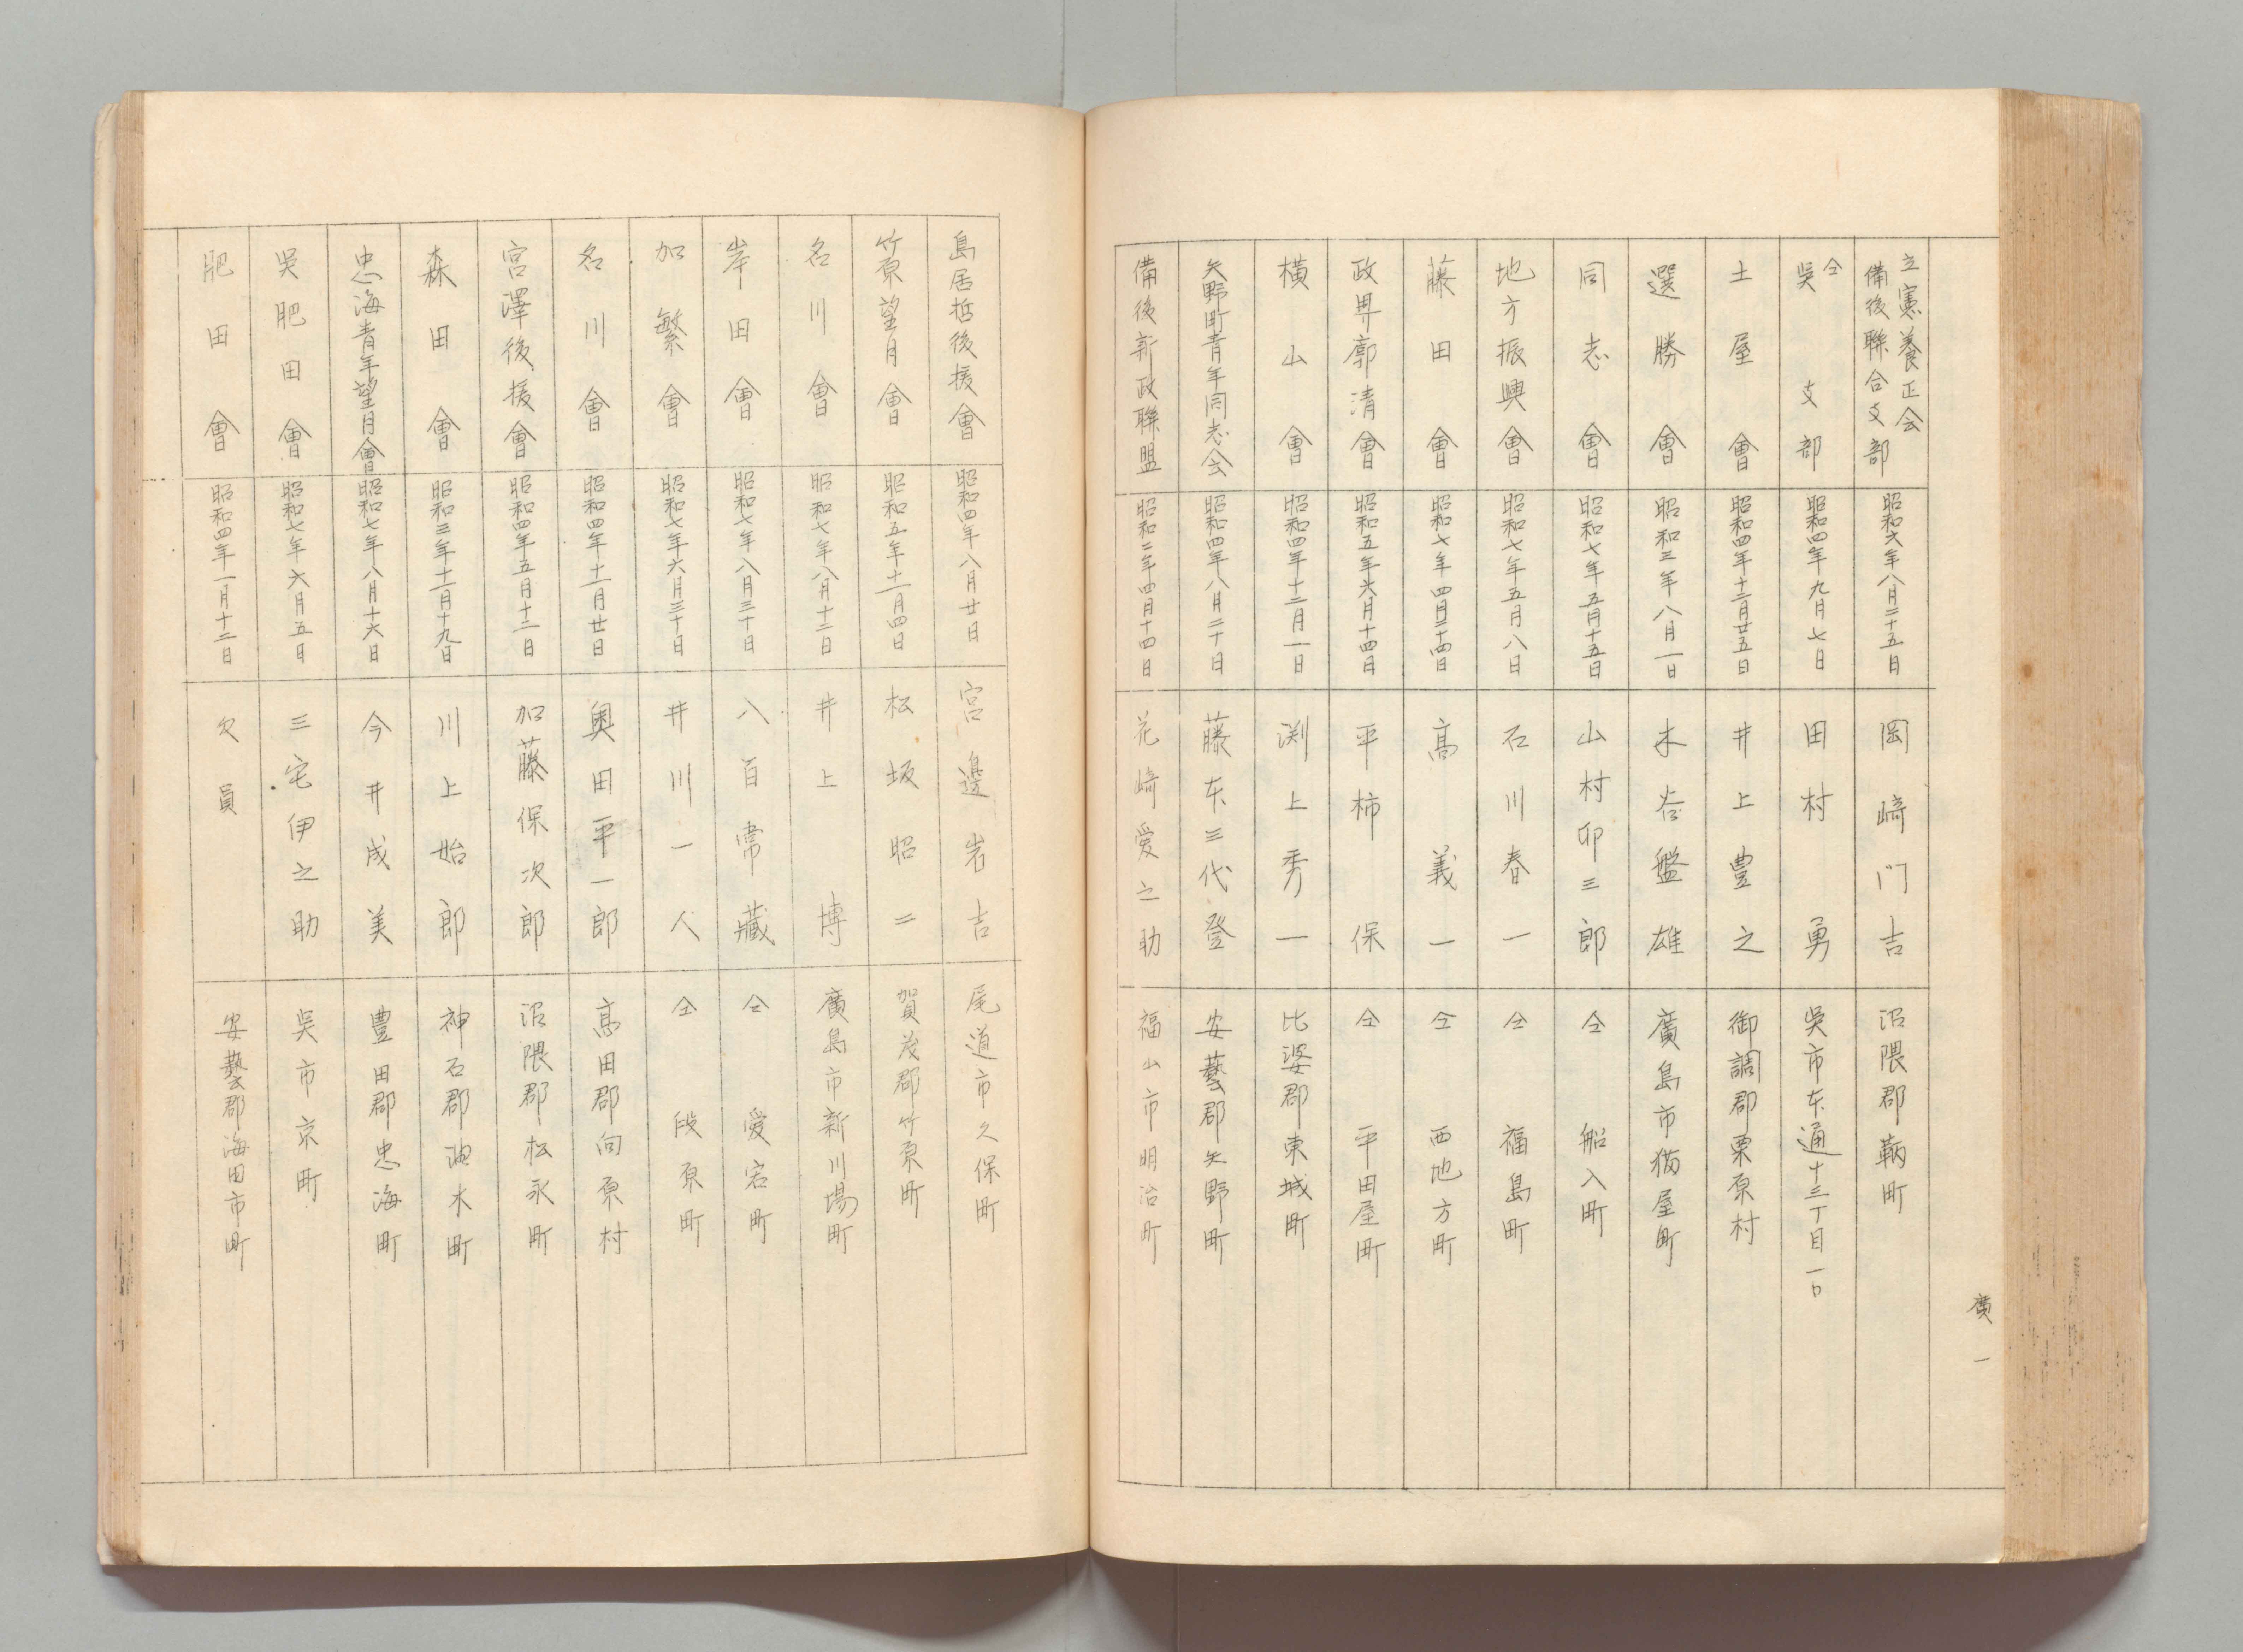 立憲養正会
備後聯合支部 昭和六年八月二十五日 岡崎門吉 沼隈郡鞆町
仝
呉支部 昭和四年九月七日 田村勇 呉市本通十三丁目一口
土屋會 昭和四年十二月廿五日 井上豊之 御調郡栗原村
選勝會 昭和三年八月一日 木谷盤雄 廣島市猫屋町
同志會 昭和七年五月十五日 山村卯三郎 仝 船入町
地方振興會 昭和七年五月八日 石川春一 仝 福島町
藤田會 昭和七年四月二十四日 高義一 仝 西地方町
政界廓清會 昭和五年六月十四日 平柿保 仝 平田屋町
横山會 昭和四年十二月一日 渕上秀一 比婆郡東城町
矢野町青年同志会 昭和四年八月二十日 藤本三代登 安藝郡矢野町
備後新政聯盟 昭和二年四月十四日 花崎愛之助 福山市明治町
廣一
島居哲後援會 昭和四年八月廿日 宮邊岩吉 尾道市久保町
竹原望月會 昭和五年十一月四日 松坂昭二 賀茂郡竹原町
名川會 昭和七年八月十二日 井上博 廣島市新川場町
岸田會 昭和七年八月三十日 八百常藏 仝 愛宕町
加繁會 昭和七年六月三十日 井川一人 仝 段原町
名川會 昭和四年十一月廿日 奥田平一郎 高田郡向原村
宮澤後援會 昭和四年五月十二日 加藤保次郎 沼隈郡松永町
森田會 昭和三年十一月十九日 川上始郎 神石郡油木町
忠海青年望月會 昭和七年八月十六日 今井成美 豊田郡忠海町
呉肥田會 昭和七年六月五日 三宅伊之助 呉市京町
肥田會 昭和四年一月十二日 欠員 安藝郡海田市町